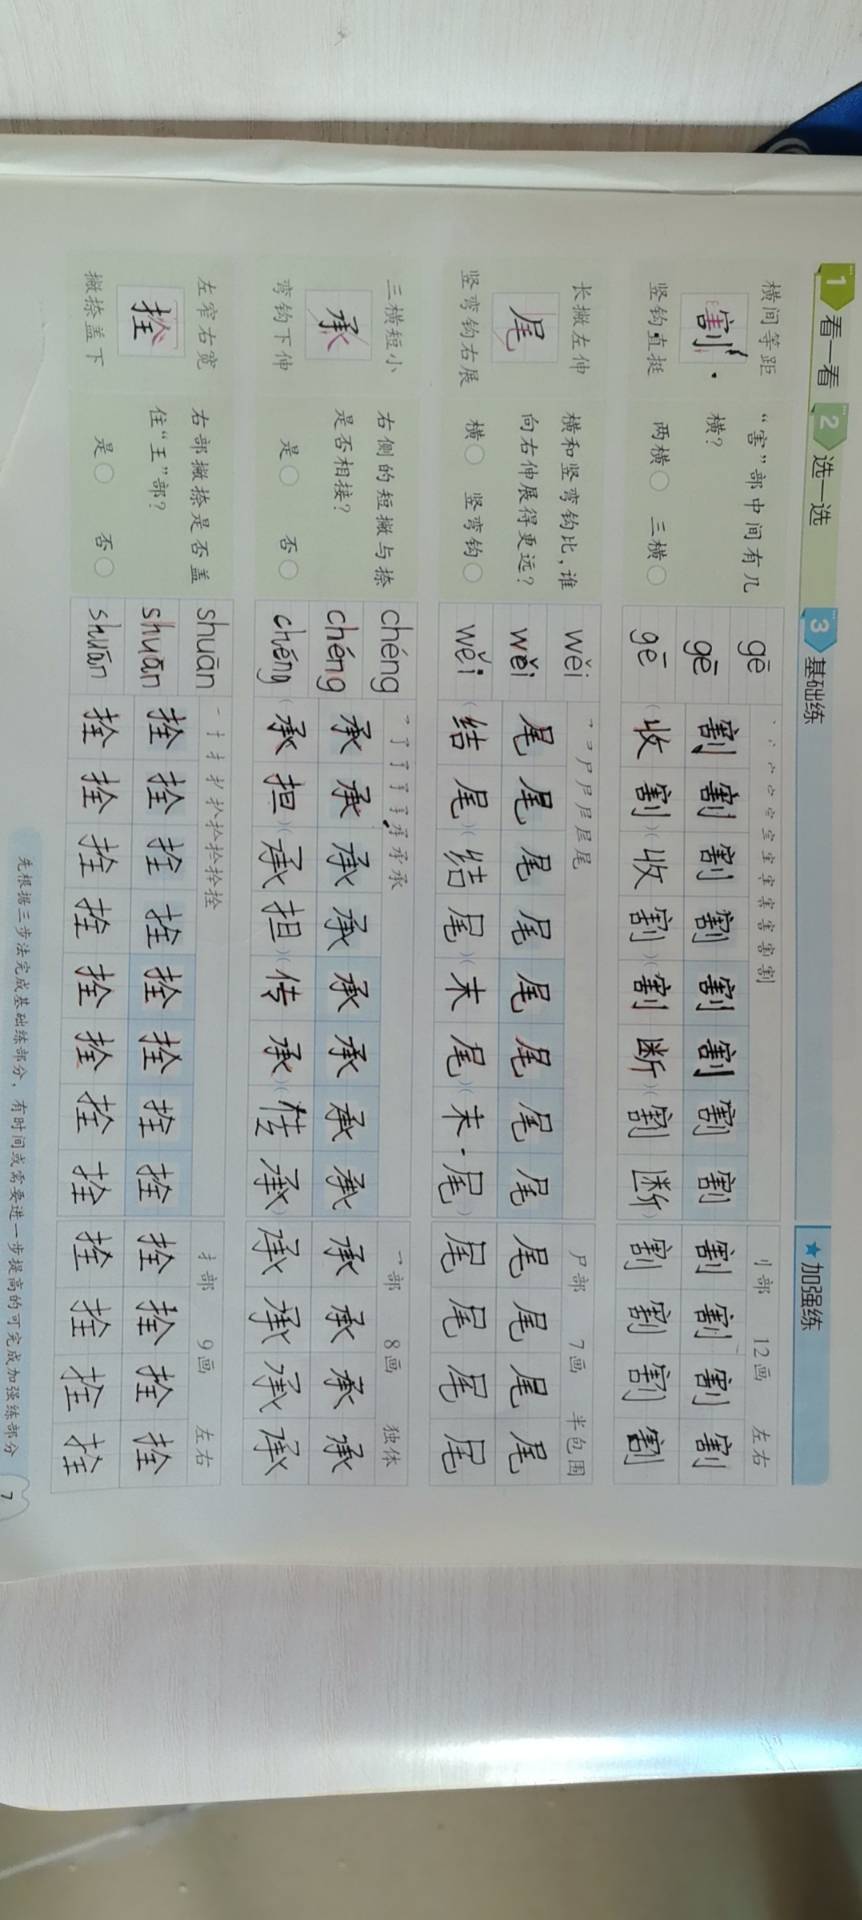 1 看一看 2 选一选 3 基础练 ★加强练
横间等距
割
竖钩直挺
“害”部中间有几
横?
两横○ 三横○
gē 刂部 12画 左右
gē 割 割 割 割 割 割 割 割 割 割 割 割
gē (收 割)(收 割)(割 断)(割 断) 割 割 割 割
长撇左伸
尾
竖弯钩右展
横和竖弯钩比,谁
向右伸展得更远?
横○ 竖弯钩○
wěi 尸部 7画 半包围
wěi 尾 尾 尾 尾 尾 尾 尾 尾 尾 尾 尾 尾
wěi (结 尾)(结 尾)(末 尾)(末 尾) 尾 尾 尾 尾
三横短小
承
弯钩下伸
右侧的短撇与捺
是否相接?
是○ 否○
chéng 乛部 8画 独体
chéng 承 承 承 承 承 承 承 承 承 承 承 承
chéng (承 担)(承 担)(传 承)(传 承) 承 承 承 承
左窄右宽
拴
撇捺盖下
右部撇捺是否盖
住“王”部?
是○ 否○
shuān 扌部 9画 左右
shuān 拴 拴 拴 拴 拴 拴 拴 拴 拴 拴 拴 拴
shuān 拴 拴 拴 拴 拴 拴 拴 拴 拴 拴 拴 拴
先根据三步法完成基础练部分,有时间或需要进一步提高的可完成加强练部分 7